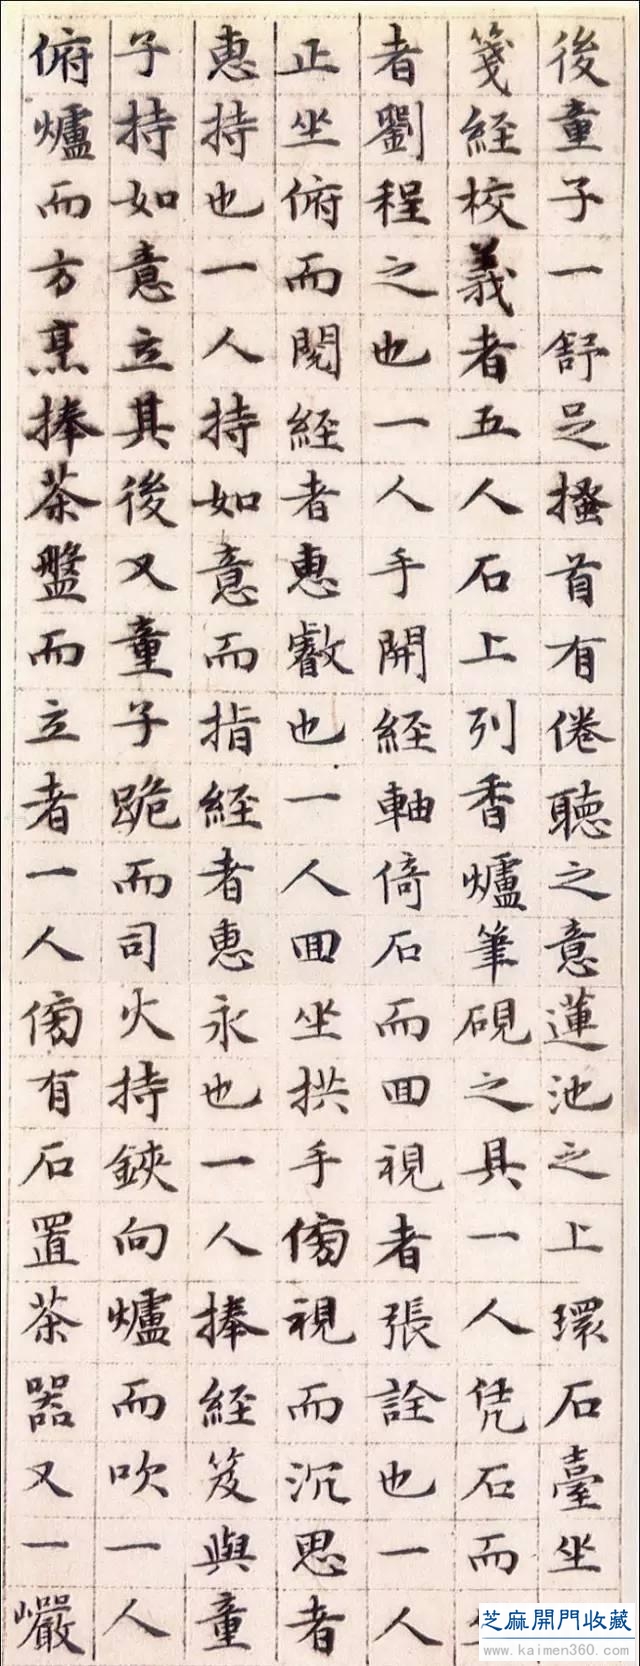 後童子一舒足搔首有倦聽之意蓮池之上環石臺坐
箋經校義者五人石上列香爐筆硯之具一人凭石而
者劉程之也一人手開經軸倚石而囬視者張詮也一人
正坐俯而閱經者惠叡也一人囬坐拱手傍視而沉思者
惠持也一人持如意而指經者惠永也一人捧經笈與童
子持如意立其後又童子跪而司火持鋏向爐而吹一人
俯爐而方烹捧茶盤而立者一人傍有石置茶器又一巗
芝麻開門收藏
www.kaimen360.com